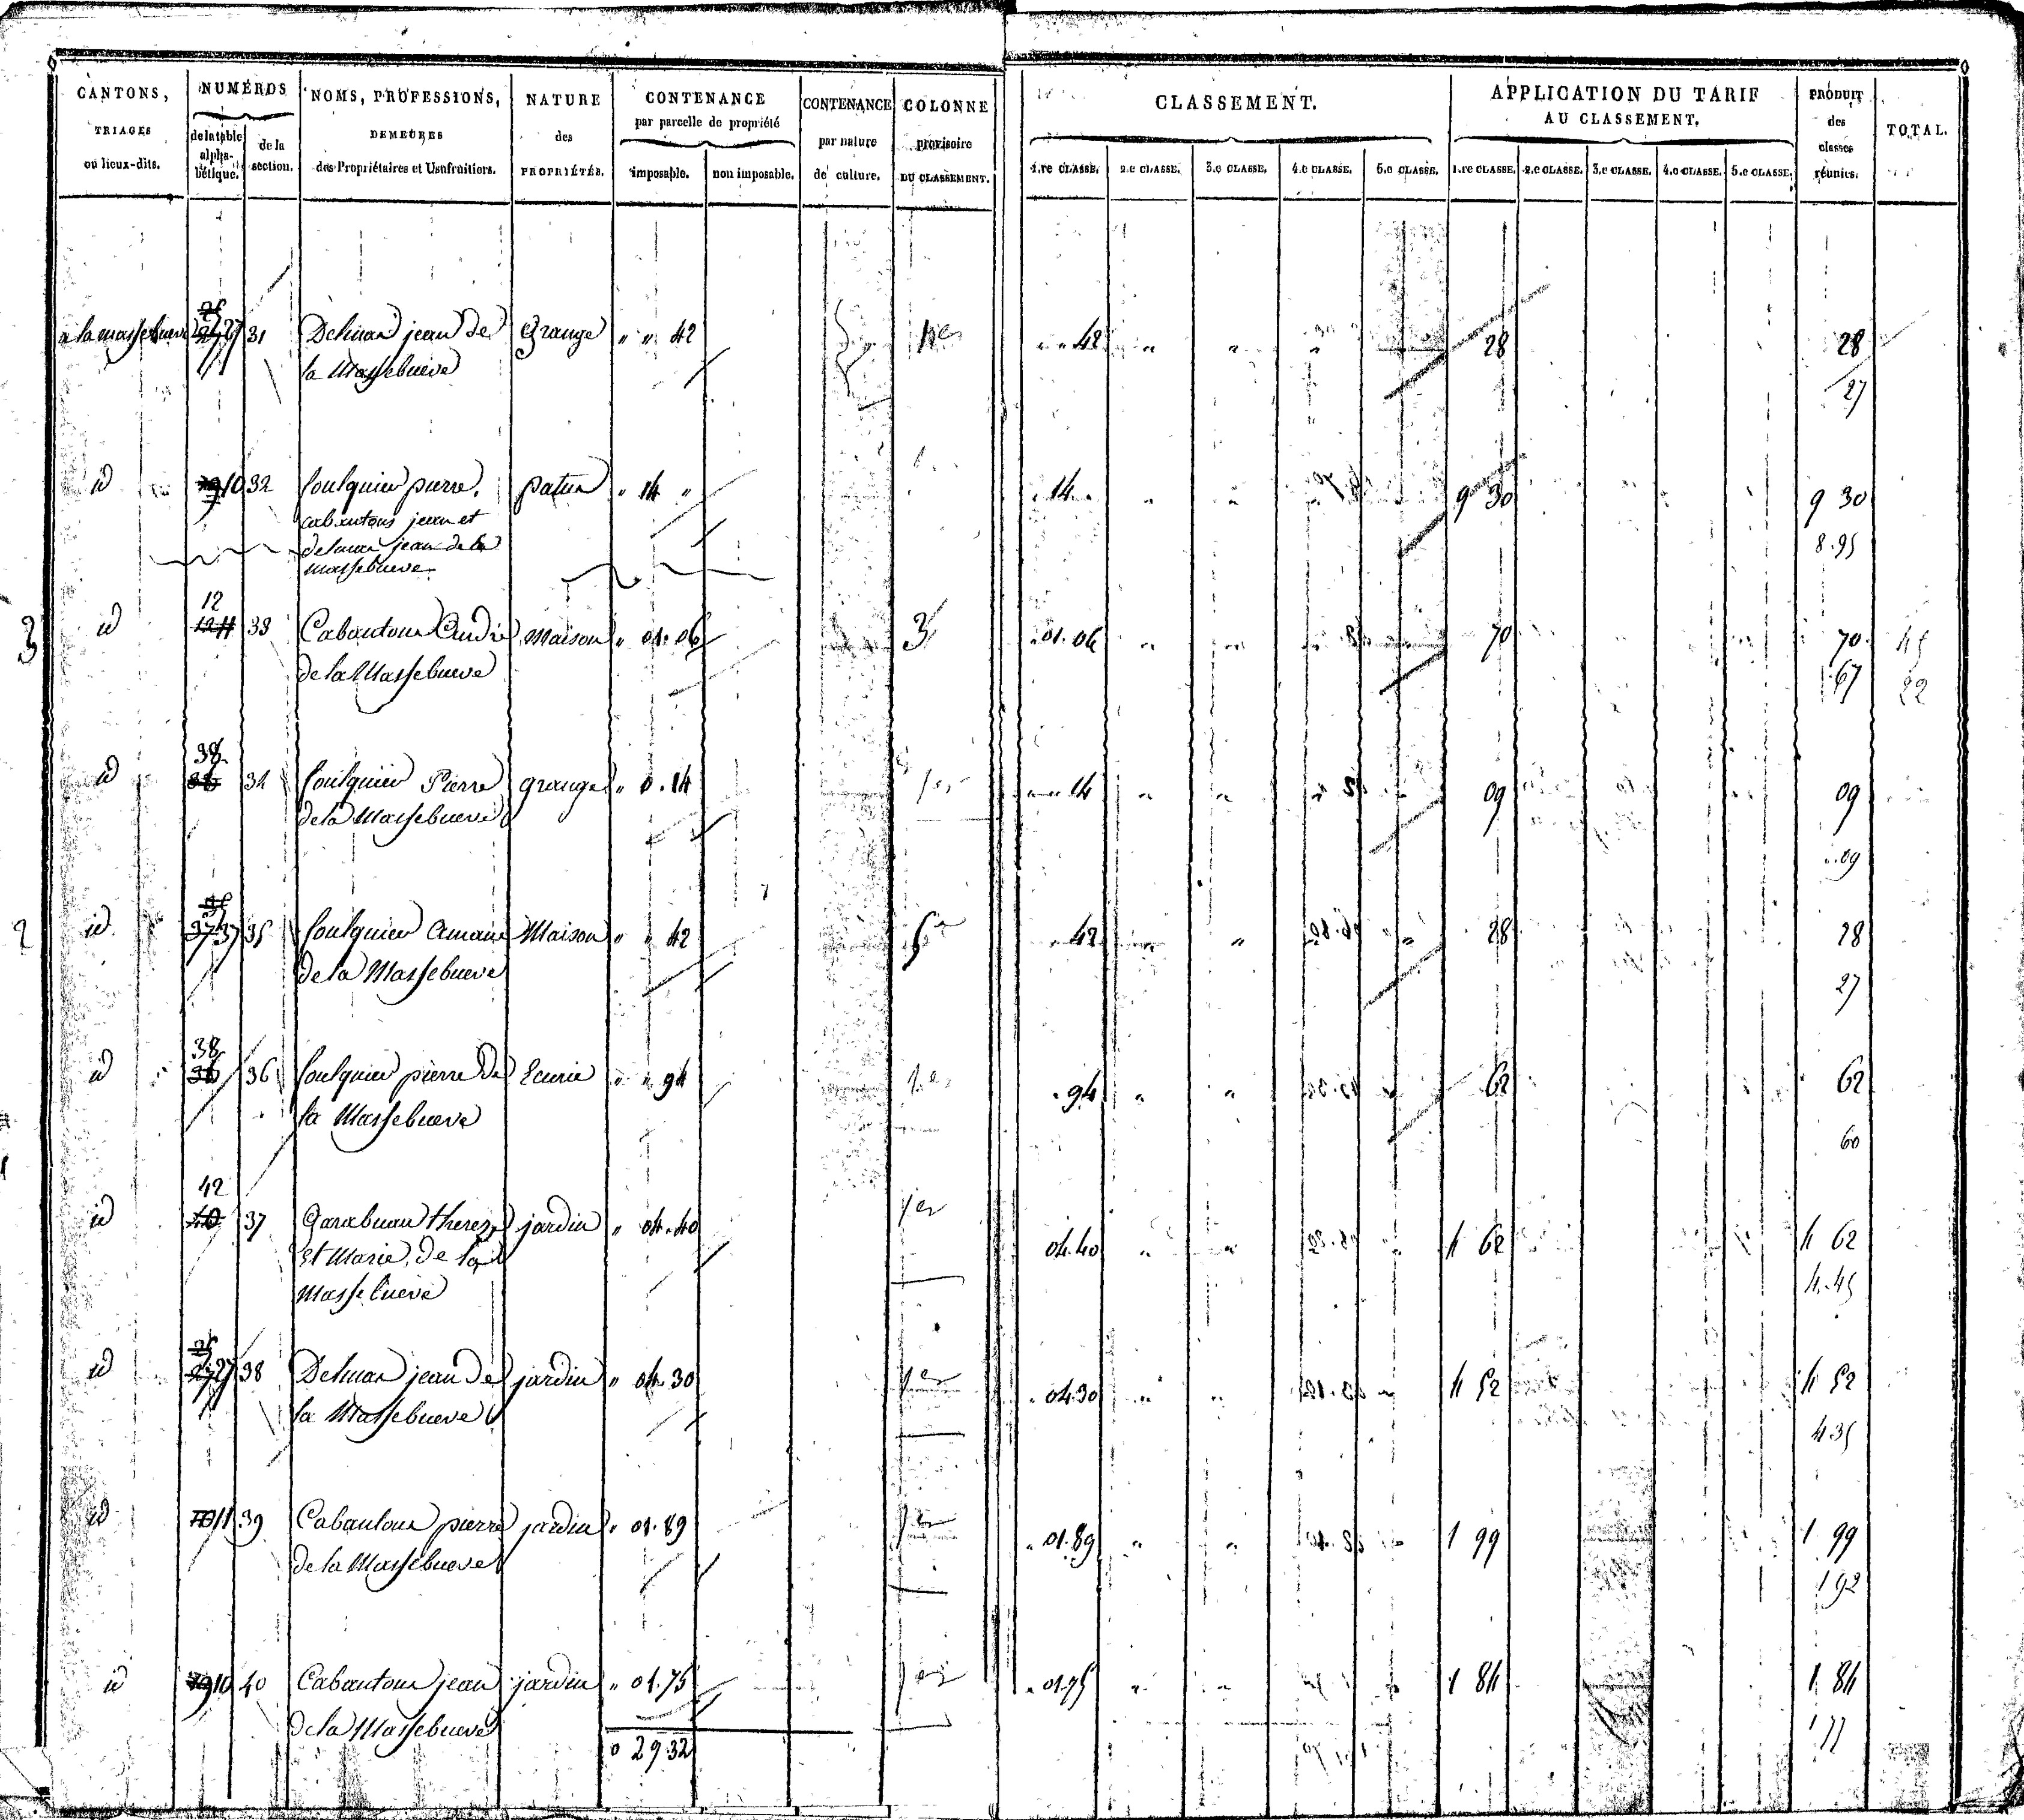 CANTONS, TRIAGES ou lieux-dits. NUMÉROS de la table alphabétique. de la section. NOMS, PROFESSIONS, DEMEURES des Propriétaires et Usufruitiers. NATURE des PROPRIÉTÉS. CONTENANCE par parcelle de propriété imposable. non imposable. CONTENANCE par nature de culture. COLONNE provisoire DU CLASSEMENT. CLASSEMENT. 1.re CLASSE. 2.e CLASSE. 3.e CLASSE. 4.e CLASSE. 5.e CLASSE. APPLICATION DU TARIF AU CLASSEMENT. 1.re CLASSE. 2.e CLASSE. 3.e CLASSE. 4.e CLASSE. 5.e CLASSE. PRODUIT des classes réunies. TOTAL.
a la massebueve 27 31 Delmas jean de grange " " 42 1er " " 42 " " " 28 28
la Massebueve 27
id 10 32 foulquier pierre. patus " 14 " " 14 " " " " 9 30 9 30
cabantous jean et
delmas jean de la 8.95
massebueve
12
3 id 33 Cabantous André Maison " 01.06 3 " 01.06 " " " 70 70 45
de la Massebueve 67 22
38
id 34 foulquier Pierre grange " 0.14 1er " " 14 " " " 09 09
de la Massebueve
.09
2 id 37 35 foulquier Amans Maison " " 42 " 42 " " " 28 28
de la Massebueve 27
38
id 36 foulquier pierre de Ecurie " " 94 1er " 94 " " 62 62
la Massebueve 60
42
id 37 therese jardin " 04.40 1er 04.40 " " " 4 62 4 62
et Marie, de la 4.45
Massebueve
id 27 38 Delmas jean de jardin " 04.30 1er " 04.30 " " " 4 52 4 52
la Massebueve 4 35
id 11 39 Cabantous pierre jardin " 01.89 1er " 01.89 " " " 1 99 1 99
de la Massebueve 1 92
id 10 40 Cabantous jean jardin " 01.75 1er " 01.75 " " " 1 84 1 84
de la Massebueve 1 77
0 29.32